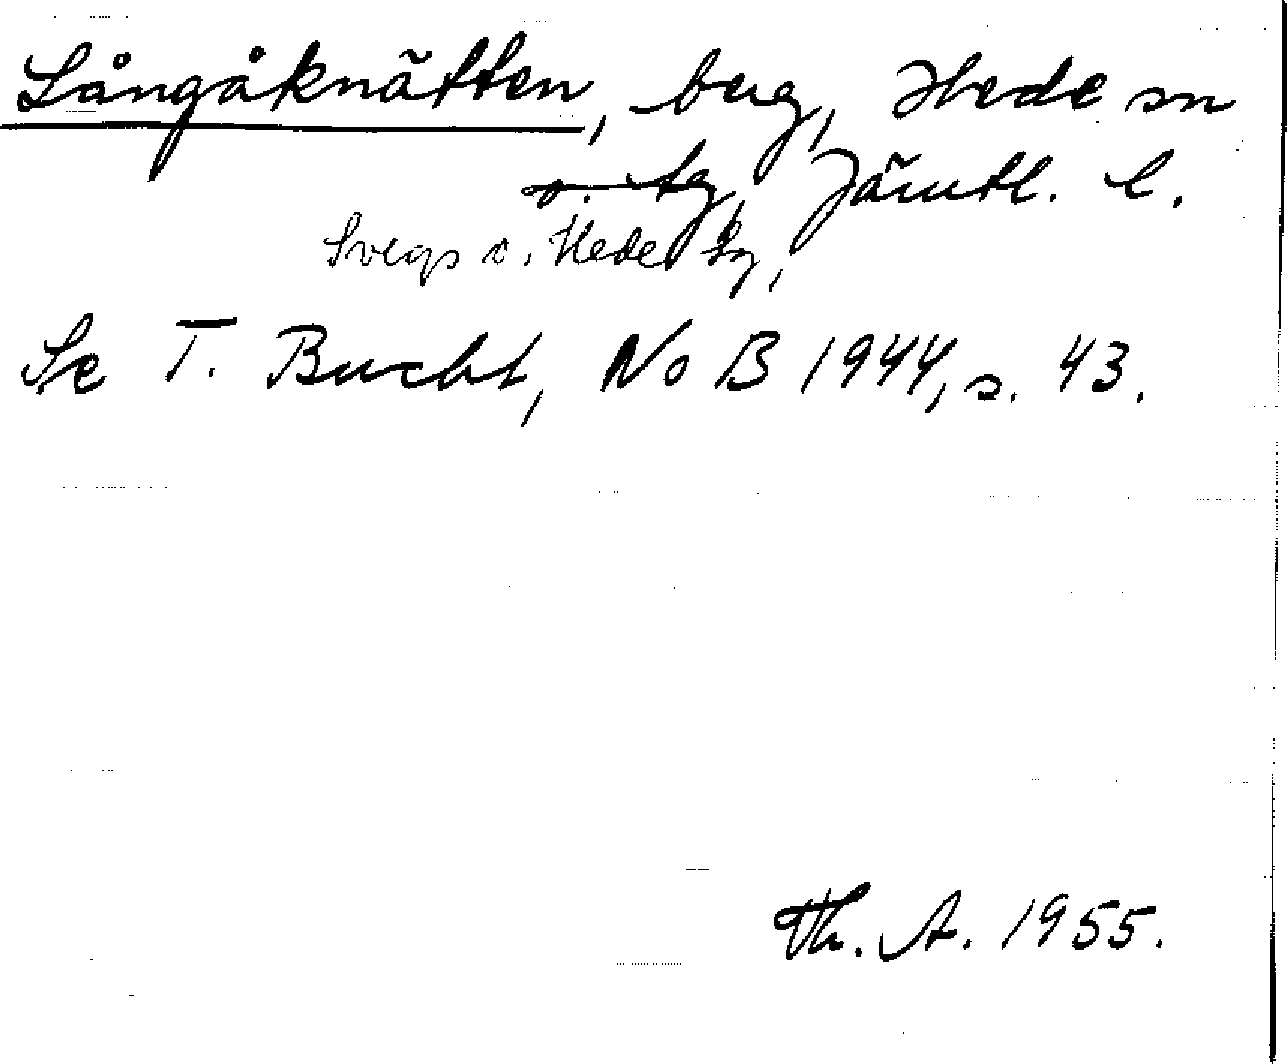 Långåknätten, berg, Hede sn
o. tg, Jämtl. l.
Svegs o. Hede tg,
Se T. Bucht, NoB 1944, s. 43.
Th. A. 1955.